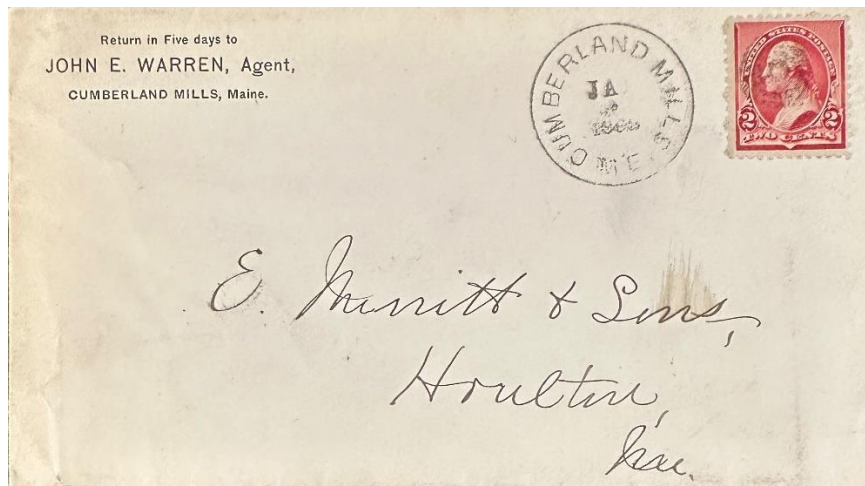 Return in Five days to
JOHN E. WARREN, Agent,
CUMBERLAND MILLS, Maine.
CUMBERLAND MILLS
ME.
JA
UNITED STATES POSTAGE
2 2
TWO CENTS
E. Merritt & Sons,
Houlton,
Me.